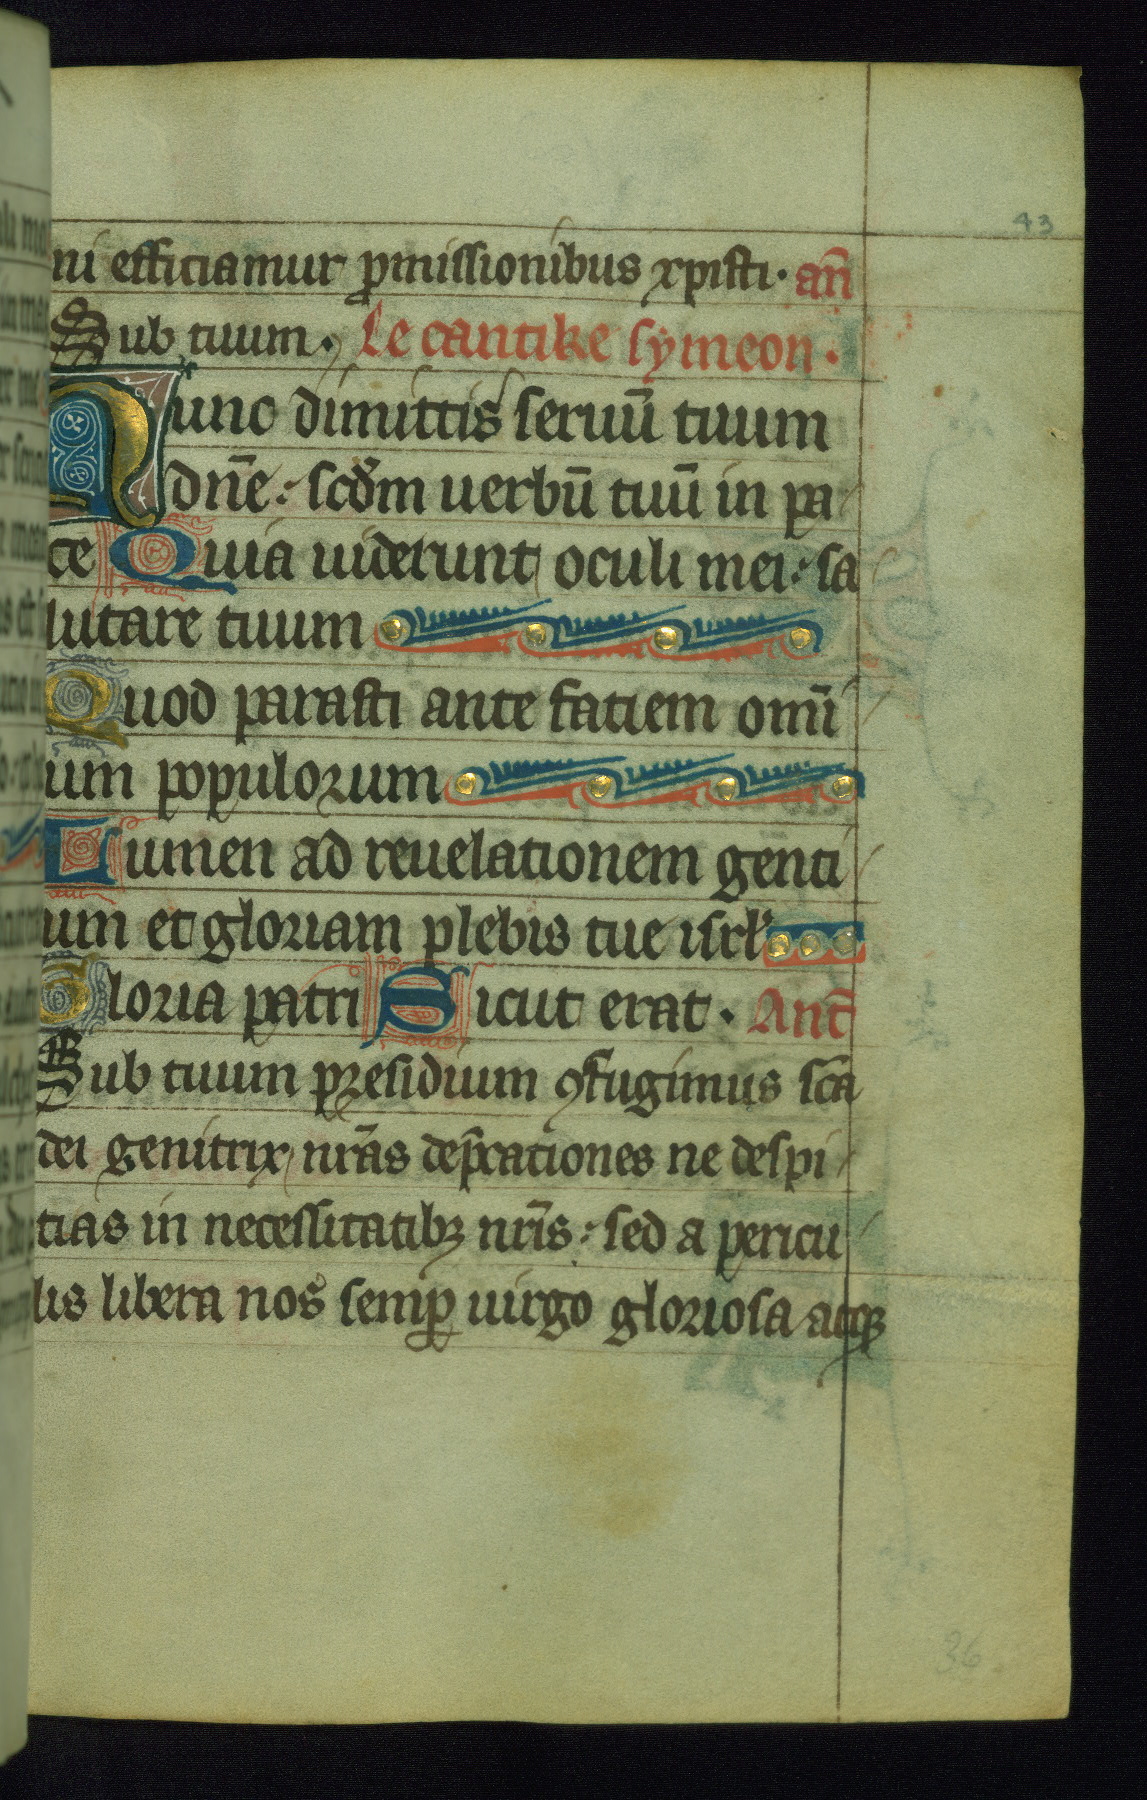 43
ni efficiamur pmissionibus xpisti · an̄
Sub tuum · Le cantike symeon ·
Nunc dimittis seruū tuum
dn̄e : scd̄m uerbū tuū in pa
ce Quia uiderunt oculi mei : sa
lutare tuum
Quod parasti ante faciem omī
um populorum
Lumen ad reuelationem genti
um et gloriam plebis tue isrl̕
Gloria patri Sicut erat · Ant̄
Sub tuum presidium ꝯfugimus sc̄a
dei genitrix nr̄as dep̄cationes ne despi
cias in necessitatibꝫ nr̄is : sed a pericu
lis libera nos semꝑ uirgo gloriosa atqꝫ
36